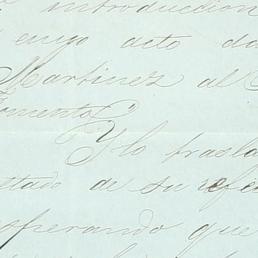 introduccion
cuyo acto da
Martinez al C
Fomento"
Y lo trasla
ttado de su refe
esperando que